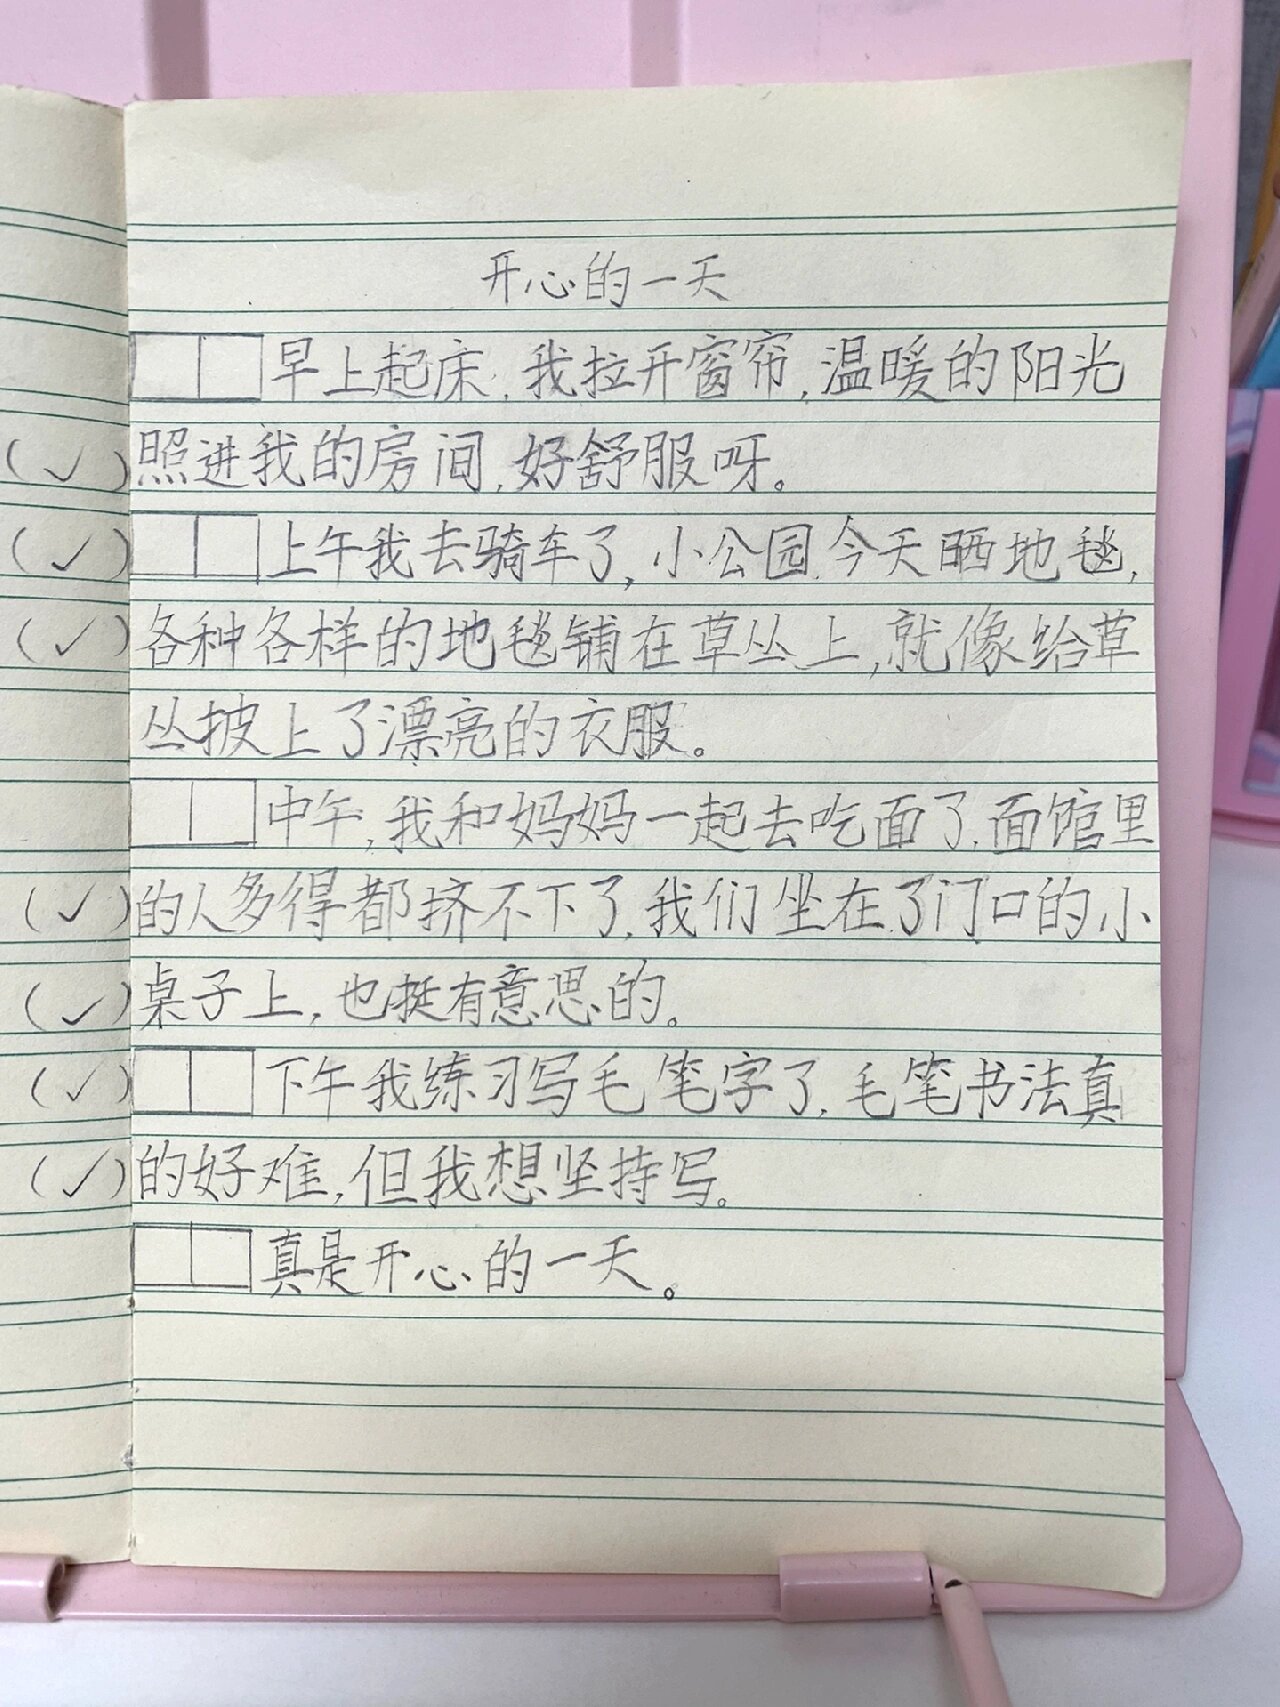 开心的一天
早上起床,我拉开窗帘,温暖的阳光
照进我的房间,好舒服呀。
上午我去骑车了,小公园今天晒地毯,
各种各样的地毯铺在草丛上,就像给草
丛披上了漂亮的衣服。
中午,我和妈妈一起去吃面了,面馆里
的人多得都挤不下了,我们坐在了门口的小
桌子上,也挺有意思的。
下午我练习写毛笔字了,毛笔书法真
的好难,但我想坚持写。
真是开心的一天。